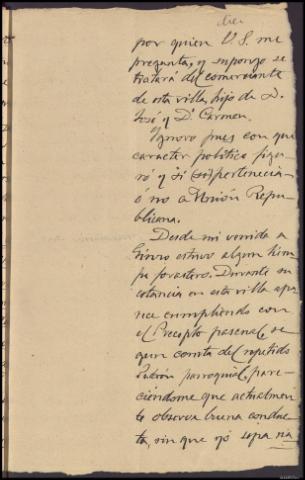 por quien V. S. me
pregunta, y supongo se
tratará del comerciante
de esta villa, hijo de D.
José y Dª Carmen.
Ygnoro pues con que
caracter político figu-
ró y si pertenecia
ó no a Unión Repu-
blicana.
Desde mi venida a
estuvo algun tiem-
po forastero. Durante su
estancia en esta villa apa-
rece cumpliendo con
el Precepto pascual, se-
gun consta del repetido
Padrón parroquial, pare-
ciéndome que actualmen-
te observa buena conduc-
ta, sin que yo sepa na